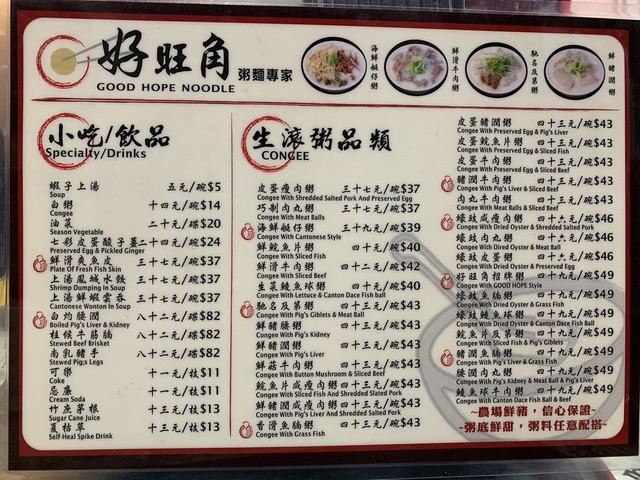 好旺角 粥麵專家
GOOD HOPE NOODLE
海鮮艇仔粥
鮮滑牛肉粥
馳名及第粥
鮮豬潤粥
小吃/飲品
Specialty/Drinks
蝦子上湯 五元/碗$5
Soup
白粥 十四元/碗$14
Congee
油菜 二十元/碟$20
Season Vegetable
七彩皮蛋酸子薑二十四元/碗$24
Preserved Egg & Pickled Ginger
鮮滑爽魚皮 三十七元/碗$37
Plate Of Fresh Fish Skin
上湯鳳城水餃 三十七元/碗$37
Shrimp Dumping In Soup
上湯鮮蝦雲吞 三十七元/碗$37
Cantonese Wonton In Soup
白灼腰潤 八十二元/碟$82
Boiled Pig's Liver & Kidney
柱候牛筋腩 八十二元/碟$82
Stewed Beef Brisket
南乳豬手 八十二元/碟$82
Stewed Pig;s Legs
可樂 十一元/枝$11
Coke
忌廉 十一元/枝$11
Cream Soda
竹庶茅根 十三元/枝$13
Sugar Cane Juice
夏枯草 十三元/枝$13
Self-Heal Spike Drink
生滾粥品類
CONGEE
皮蛋瘦肉粥 三十七元/碗$37
Congee With Shredded Salted Pork And Preserved Egg
巧制肉丸粥 三十七元/碗$37
Congee With Meat Balls
海鮮艇仔粥 三十九元/碗$39
Congee With Cantonese Style
鮮鯇魚片粥 四十元/碗$40
Congee With Sliced Fish
鮮滑牛肉粥 四十二元/碗$42
Congee With Sliced Beef
生菜鯪魚球粥 四十元/碗$40
Congee With Lettuce & Canton Dace Fish ball
馳名及第粥 四十三元/碗$43
Congee With Pig's Giblets & Meat Ball
鮮豬腰粥 四十三元/碗$43
Congee With Pig's Kidney
鮮豬潤粥 四十三元/碗$43
Congee With Pig's Liver
鮮菇牛肉粥 四十三元/碗$43
Congee With Button Mushroom & Sliced Beef
鯇魚片咸瘦肉粥四十三元/碗$43
Congee With Sliced Fish And Shredded Slated Pork
鮮豬潤咸瘦肉粥四十三元/碗$43
Congee With Pig's Liver And Shredded Salted Pork
香滑魚腩粥 四十三元/碗$43
Congee With Grass Fish
皮蛋豬潤粥 四十三元/碗$43
Congee With Preserved Egg & Pig's Liver
皮蛋鯇魚片粥 四十三元/碗$43
Congee With Preserved Egg & Sliced Fish
皮蛋牛肉粥 四十三元/碗$43
Congee With Preserved Egg & Sliced Beef
豬潤牛肉粥 四十三元/碗$43
Congee With Pig's Liver & Sliced Beef
肉丸牛肉粥 四十三元/碗$43
Congee With Meat Balls & Sliced Beef
蠔豉咸瘦肉粥 四十六元/碗$46
Congee With Dried Oyster & Shredded Salted Pork
蠔豉肉丸粥 四十六元/碗$46
Congee With Dried Oyster & Meat Ball
蠔豉皮蛋粥 四十六元/碗$46
Congee With Dried Oyster & Perserved Egg
好旺角招牌粥 四十九元/碗$49
Congee With GOOD HOPE Style
蠔豉魚腩粥 四十九元/碗$49
Congee With Dried Oyster & Grass Fish
蠔豉鯪魚球粥 四十九元/碗$49
Congee With Dried Oyster & Canton Dace Fish Ball
鯇魚片及第粥 四十九元/碗$49
Congee With Sliced Fish & Pig's Giblets
豬潤魚腩粥 四十九元/碗$49
Congee With Pig's Liver & Grass Fish
腰潤肉丸粥 四十九元/碗$49
Congee With Pig's Kidney & Meat Ball & Pig's Liver
鯪魚球牛肉粥 四十九元/碗$49
Congee With Canton Dace Fish Ball & Beef
~農場鮮豬，信心保證~
~粥底鮮甜，粥料任意配搭~